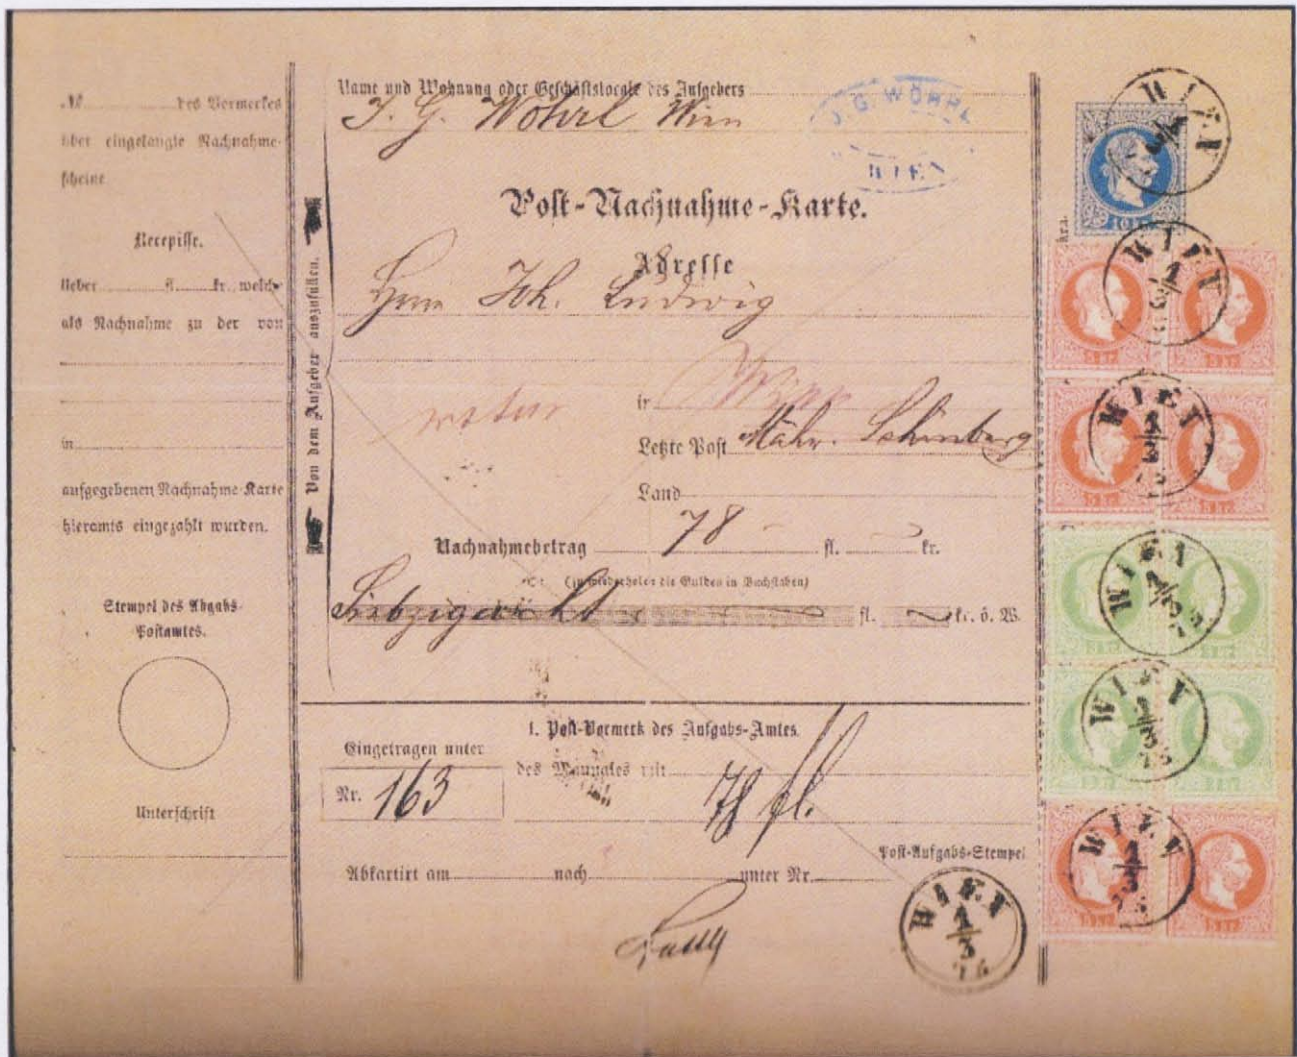 № des Vermerkes
über eingelangte Nachnahme-
scheine
Recepisse.
Ueber fl. kr. welche
als Nachnahme zu der von
in
aufgegebenen Nachnahme-Karte
hieramts eingezahlt wurden.
Stempel des Abgabs-
Postamtes.
Unterschrift
Von dem Aufgeber auszufüllen.
Name und Wohnung oder Geschäftslocale des Aufgebers
J. G. Wöhrl Wien
J. G. WÖHRL
WIEN
Post-Nachnahme-Karte.
Adresse
Herrn Joh. Ludwig
retour
in Wien
Letzte Post Mähr. Schönberg
Land
Nachnahmebetrag 78 fl. kr.
(zu wiederholen die Gulden in Buchstaben)
Siebzigacht fl. kr. ö. W.
1. Post-Vormerk des Aufgabs-Amtes.
Eingetragen unter
des Manuales mit 78 fl.
Nr. 163
Post-Aufgabs-Stempel
Abkartirt am nach unter Nr.
WIEN
1/3
75
10 kr.
WIEN
WIEN
1/3
5 KR. 5 KR.
WIEN
1/3
75
5 KR. 5 KR.
WIEN
1/3
75
3 KR. 3 KR.
WIEN
1/3
75
3 KR. 3 KR.
WIEN
1/3
75
5 KR. 5 KR.